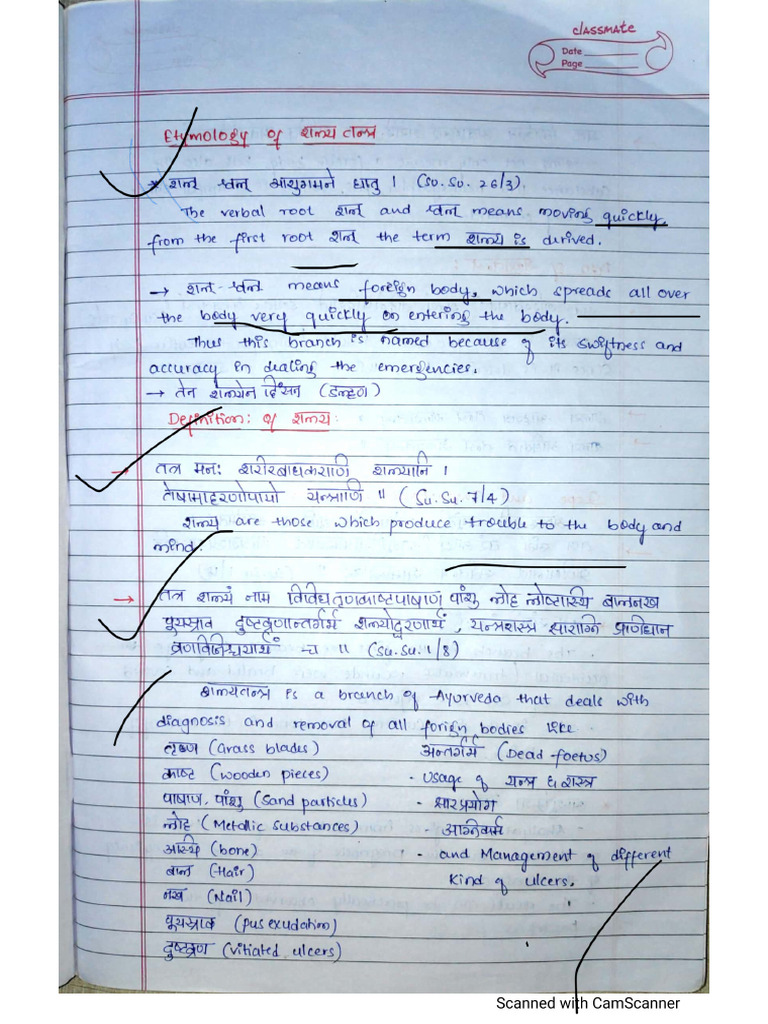 classmate
Date
Page
Etymology of शल्य तन्त्र
* शल् श्वल् आशुगमने धातु । (Su. Su. 26/3).
The verbal root शल् and श्वल् means moving quickly,
from the first root शल् the term शल्य is derived.
→ शल्-श्वल् means foreign body, which spreads all over
the body very quickly on entering the body.
Thus this branch is named because of its swiftness and
accuracy in dealing the emergencies.
→ तेन शल्येन हिंसन (डल्हण)
Definition: of शल्य:
→ तत्र मन: शरीरबाधकराणि शल्यानि ।
तेषामाहरणोपायो यन्त्राणि ॥ (Su. Su. 7/4)
शल्य are those which produce trouble to the body and
mind.
→ तत्र शल्यं नाम विविधतृणकाष्टपाषाण पांशु लोह लोष्टास्थि बालनख
पूयस्त्राव दुष्टव्रणान्तर्गर्भ शल्योद्धरणार्थं, यन्त्रशस्त्र क्षाराग्नि प्राणिधान
व्रणविनिश्चयार्थं च ॥ (Su. Su. 1/8)
शल्यतन्त्र is a branch of Ayurveda that deals with
diagnosis and removal of all forign bodies like
तृण (Grass blades) अन्तर्गर्भ (Dead foetus)
काष्ट (wooden pieces) - usage of यन्त्र & शस्त्र
पाषाण, पांशु (Sand particles) - क्षारप्रयोग
लोह (Metallic substances) - अग्निकर्म
अस्थि (bone) - and Management of different
बाल (Hair) kind of ulcers.
नख (Nail)
पूयस्त्राव (pus exudation)
दुष्टव्रण (vitiated ulcers)
Scanned with CamScanner